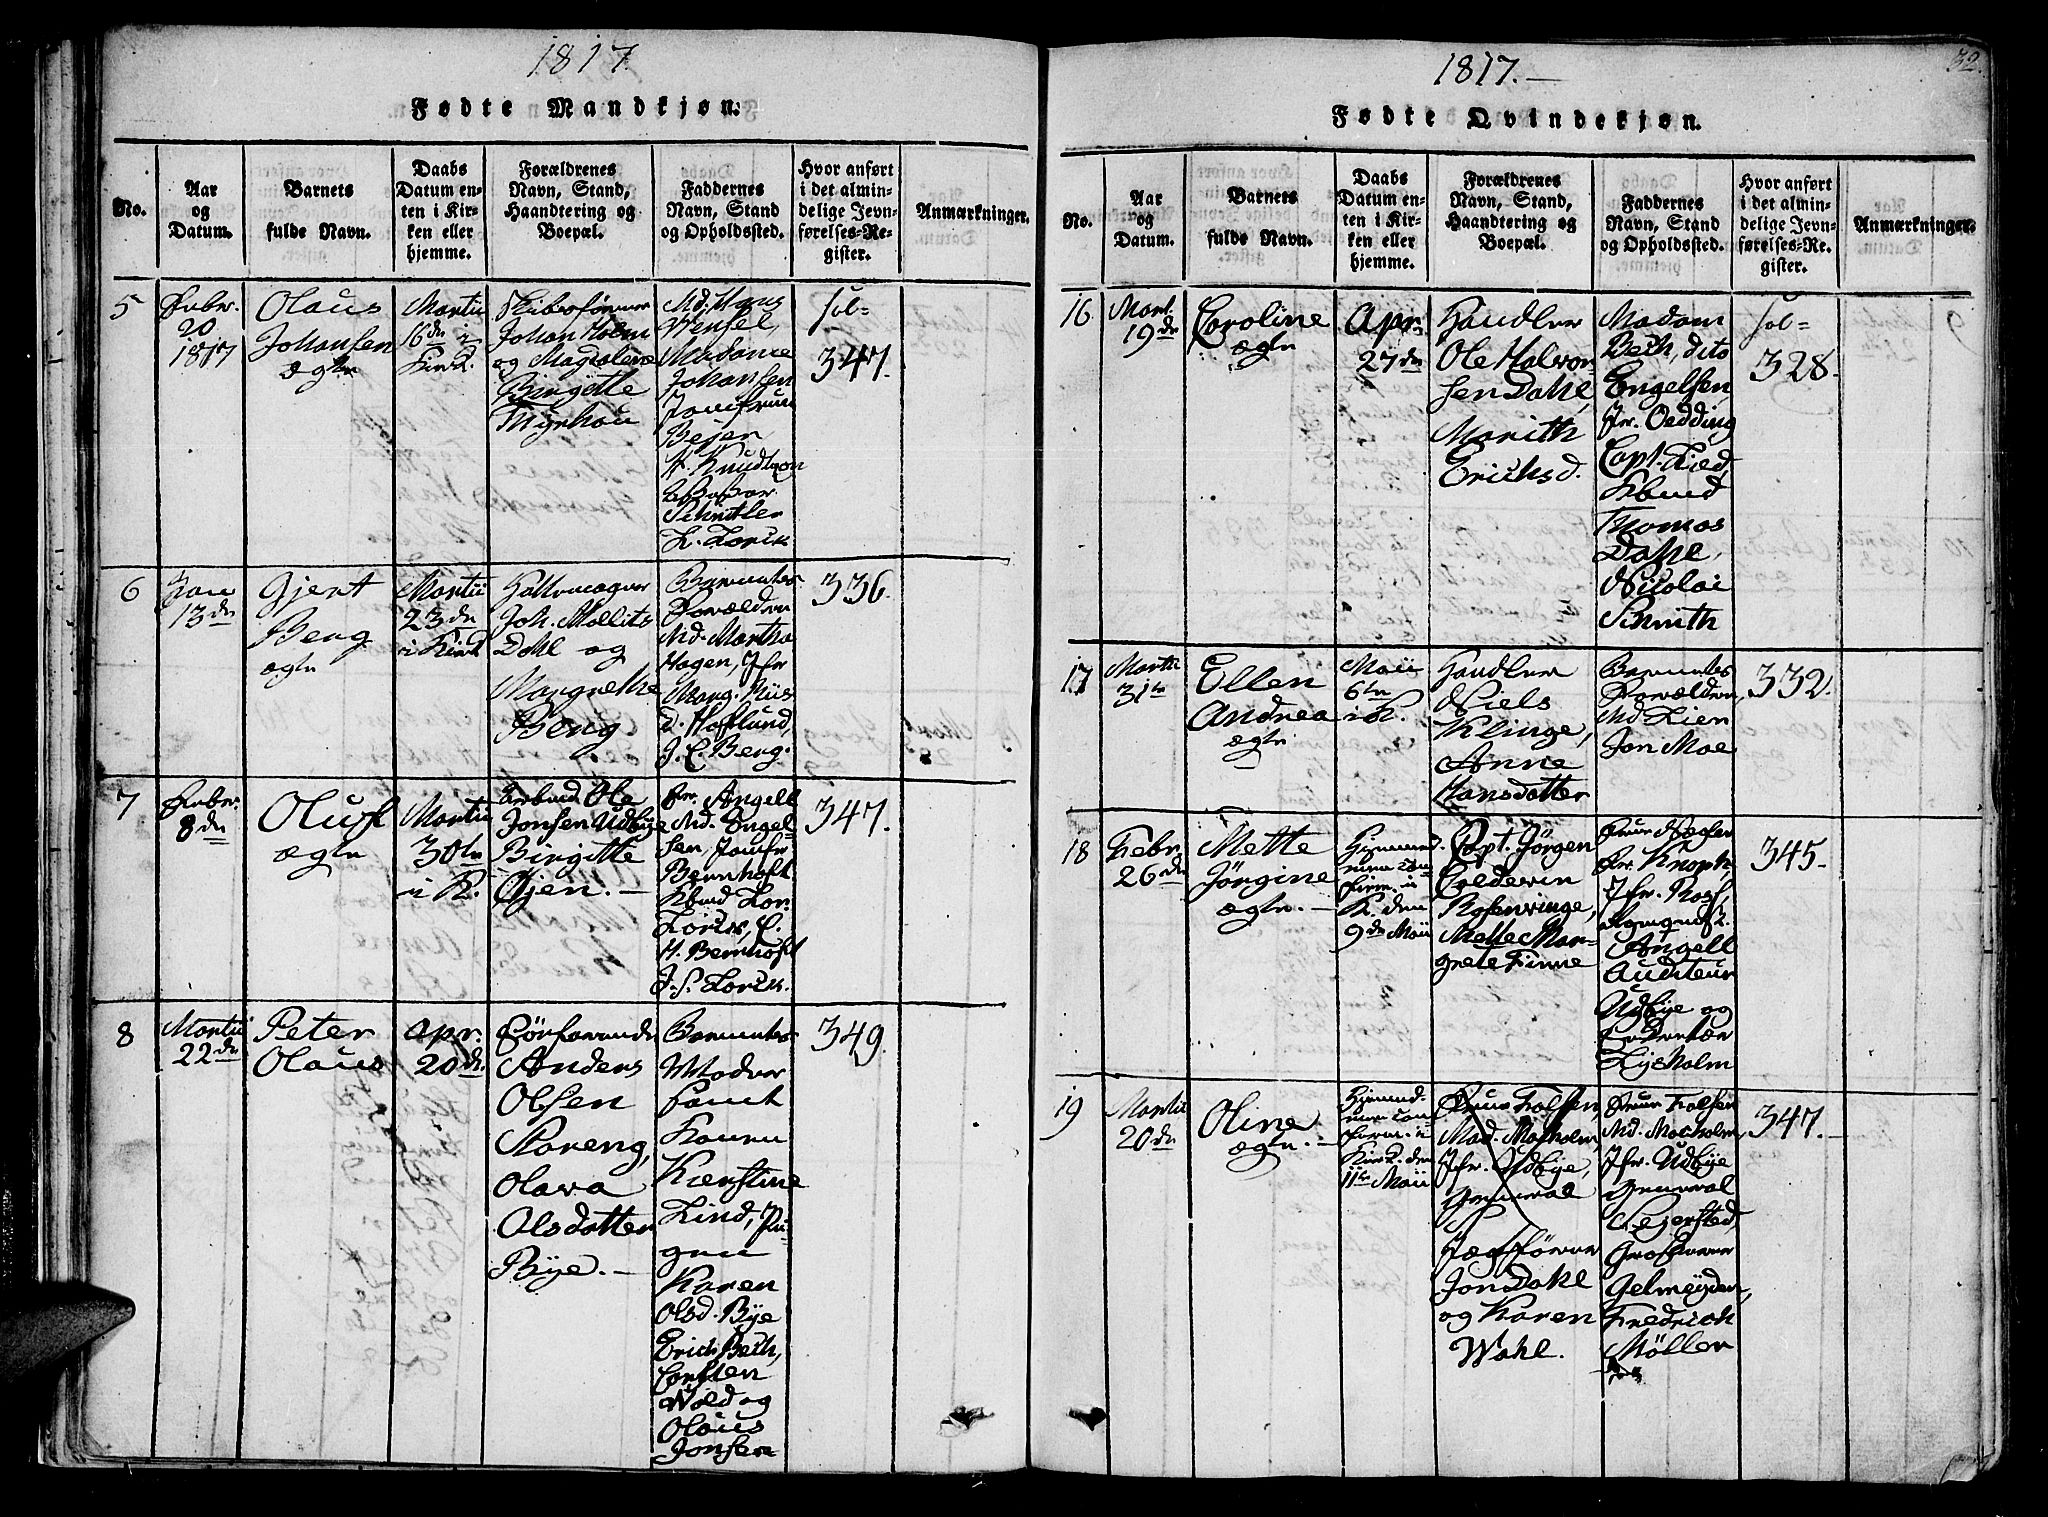 1817.
Fødte Mandkjøn.
No.
Aar
og
Datum.
Barnets
fulde Navn.
Daabs
Datum en-
ten i Kir-
ken eller
hjemme.
Forældrenes
Navn, Stand,
Haandtering og
Boepæl.
Faddernes
Navn, Stand
og Opholdssted.
Hvor anført
i det almin-
delige Jevn-
førelses-Re-
gister.
Anmærkninger.
5
Febr.
20
1817
Olaus
Johansen
ægte
Martii
16de i
Kirk.
Skibsfører
Johan Holm
og Magdalene
Birgitte
Thyrhau
Md. Hans
Wensel,
Madame
Johansen
Jomfrue
Bejer
H. Knudtzon
Schnitler
L. Lorck
fol-
347.
6
Jan
13de
Gjert
Berg
ægte
Martii
23de
i Kirk
Hattemager
Joh. Mollits
Dahl og
Margrethe
Berg.
Barnets
Forældre
Md. Martha
Hagen, Jfr
Marg. Riis
Hoflund,
J. C. Berg.
336.
7
Febr.
8de
Oluf
ægte
Martii
30te
i K.
Arbmd Ole
Jonsen Udbye
Birgitte
Øjen.
Fr. Angell
Md. Engel-
sen, Jomfr
Bernhoft
Kbmd Lor.
Lorck, C.
H. Bernhoft
J. S. Lorck.
347.
8
Martii
22de
Peter
Olaus
Apr.
20de
Førfarende
Anders
Olsen
Støreng,
Olava
Olsdatter
Bye.
Barnets
Moder
samt
Konen
Kierstine
Lind, Pi-
gen
Karen
Olsd. Bye
Erich Beth,
Torsten
Wold og
Olaus
Jonsen
349.
1817.
32.
Fødte Qvindekjøn.
No.
Aar
og
Datum.
Barnets
fulde Navn.
Daabs
Datum en-
ten i Kir-
ken eller
hjemme.
Forældrenes
Navn, Stand,
Haandtering og
Boepæl.
Faddernes
Navn, Stand
og Opholdssted.
Hvor anført
i det almin-
delige Jevn-
førelses-Re-
gister.
Anmærkninger.
16
Mart.
19de
Caroline
ægte
Apr.
27de
Handler
Ole Halvor
sen Dahl,
Marith
Erichsd.
Madam
Beth, dito
Engelsen
Fr. Oedding
Capt. Lied,
Kbmd
Thomas
Dahl,
Nicolai
Schmith
fol-
328.
17
Martii
31te
Ellen
Andrea
ægte
Maii
6te
i K.
Handler
Niels
Klinge,
Anne
Hansdatter
Barnets
Forældre,
Md Lien
Jon Moe
332.
18
Febr
26de
Mette
Jörgine
ægte.
Hjemmed.
men con-
firm. i
K. den
9de Maii
Capt. Jörgen
Coldevin
Rosenvinge,
Mette Mar-
grete Finne
Frue Nægler
Fr. Knoph,
Jfr. Ross,
Angell
Auditeur
Udbye og
Lysholm
345.
19
Martii
20de
Oline
ægte.
Hjemmed.
men con
firm. i
Kirk. den
11te Maii
Frue Folsen,
Mad. Motholm,
Jfr. Udbye,
General
Jægtfører
Jon Dahl
og Karen
Wahl.
Frue Folsen
Md. Motholm,
Jfr. Udbye
General
Lejersted,
Grosserer
Gelmeyden,
Fredrich
Möller
347.